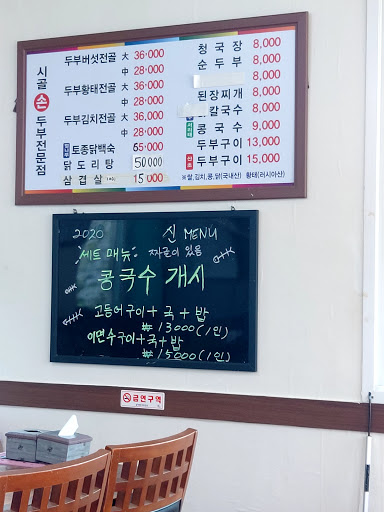 시골손두부전문점
두부버섯전골 大 36,000
中 28,000
두부황태전골 大 36,000
中 28,000
두부김치전골 大 36,000
中 28,000
토종닭백숙 65,000
닭도리탕 50,000
삼겹살 15,000
청국장 8,000
순두부 8,000
8,000
된장찌개 8,000
칼국수 8,000
콩국수 9,000
두부구이 13,000
두부구이 15,000
※쌀,김치,콩,닭(국내산) 황태(러시아산)
2020 신 MENU
세트 매뉴: 짜글이 있음
콩국수 개시
고등어구이+국+밥
₩13000(1인)
이면수구이+국+밥
₩15000(1인)
금연구역